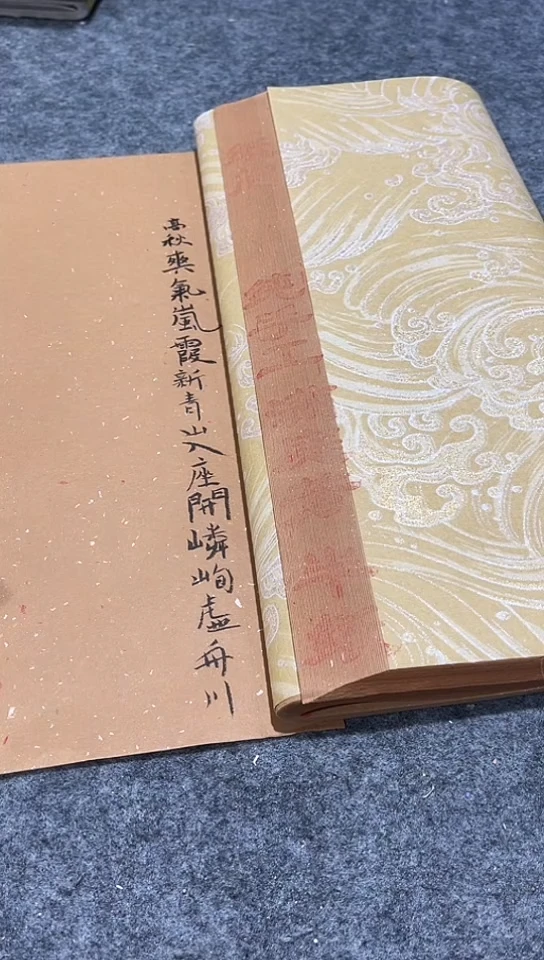 高秋爽氣嵐霞新青山入座開嶙峋虛舟川